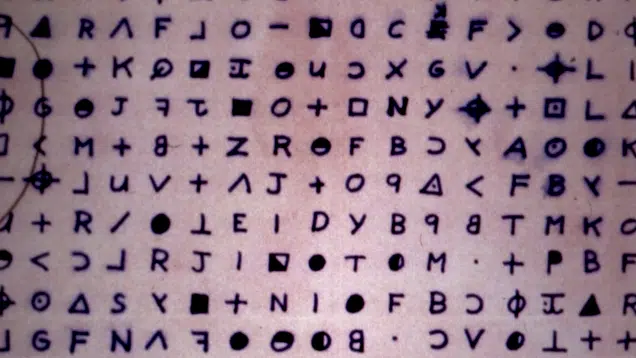 ◭ R Λ F ⅃ O − ◪ ᗡ C F > ◒ D
● + K ∅ ◪ I ◒ U Ɔ X G V · ⌖ L I
Φ G ◒ J ꟻ Շ ■ O + □ N Y ⌖ + ▣ L △
< M + 8 + Z R ◒ F B Ɔ ⅄ A ⊙ ◐ K
− ⌖ ⅃ U V + Λ J + O 9 ◬ < F B ⅄ −
+ R / ● ⊥ E I D Y B 9 8 T M K
< Ɔ ⅃ R J I ◪ ● T ◐ M · + P B F
⌖ ⊙ △ S ⅄ ■ + N I ● F B Ɔ Φ I ▲ R
⅃ G F N Λ ꟻ ● ◒ ◐ 8 · Ɔ V ◐ ⊥ + +